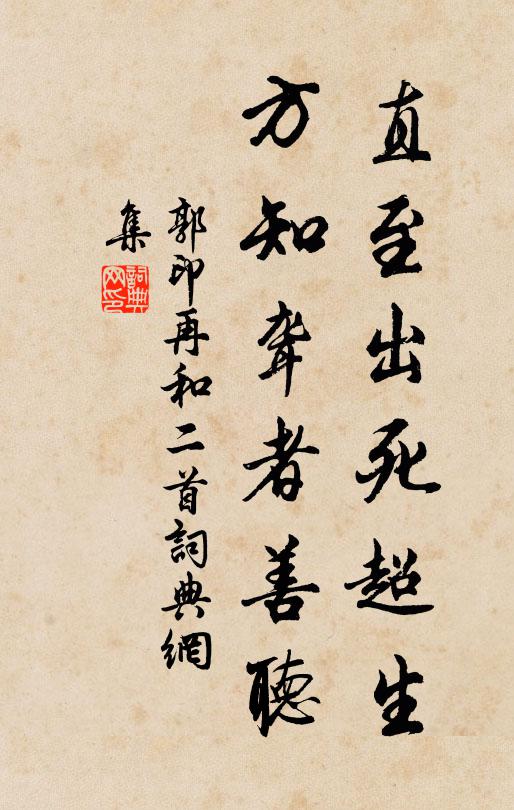 直至出死超生
方知聋者善聽
郭印再和二首詞典網
集
詞典
网印